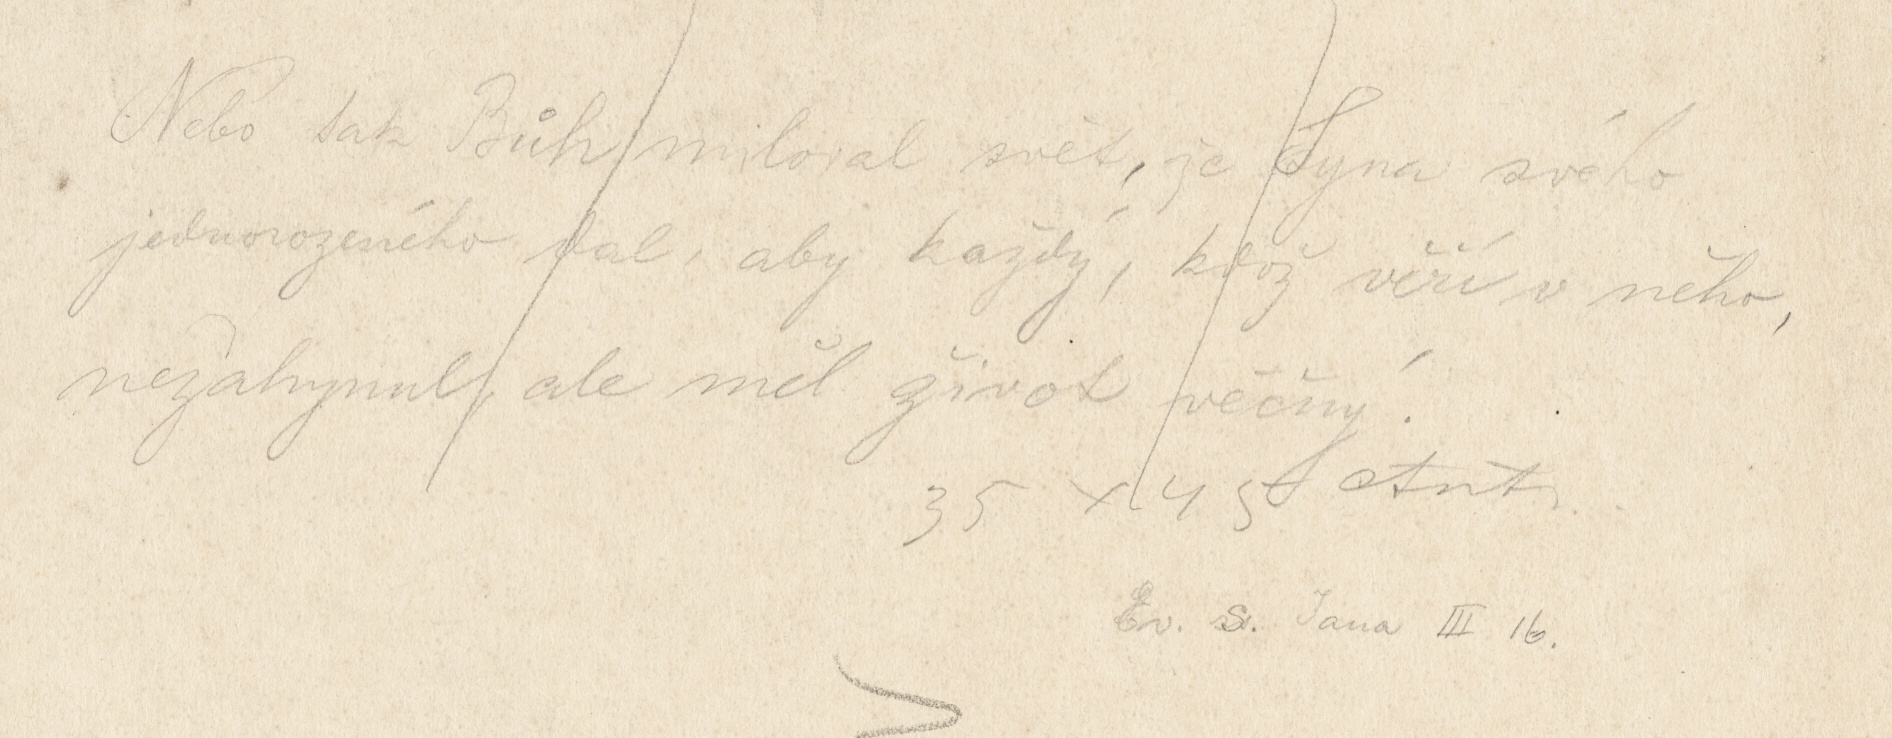 Nebo tak Bůh miloval svět, že Syna svého
jednorozeného dal, aby každý, kdož věří v něho,
nezahynul, ale měl život věčný.
35 x 45
Ev. S. Jana III 16.